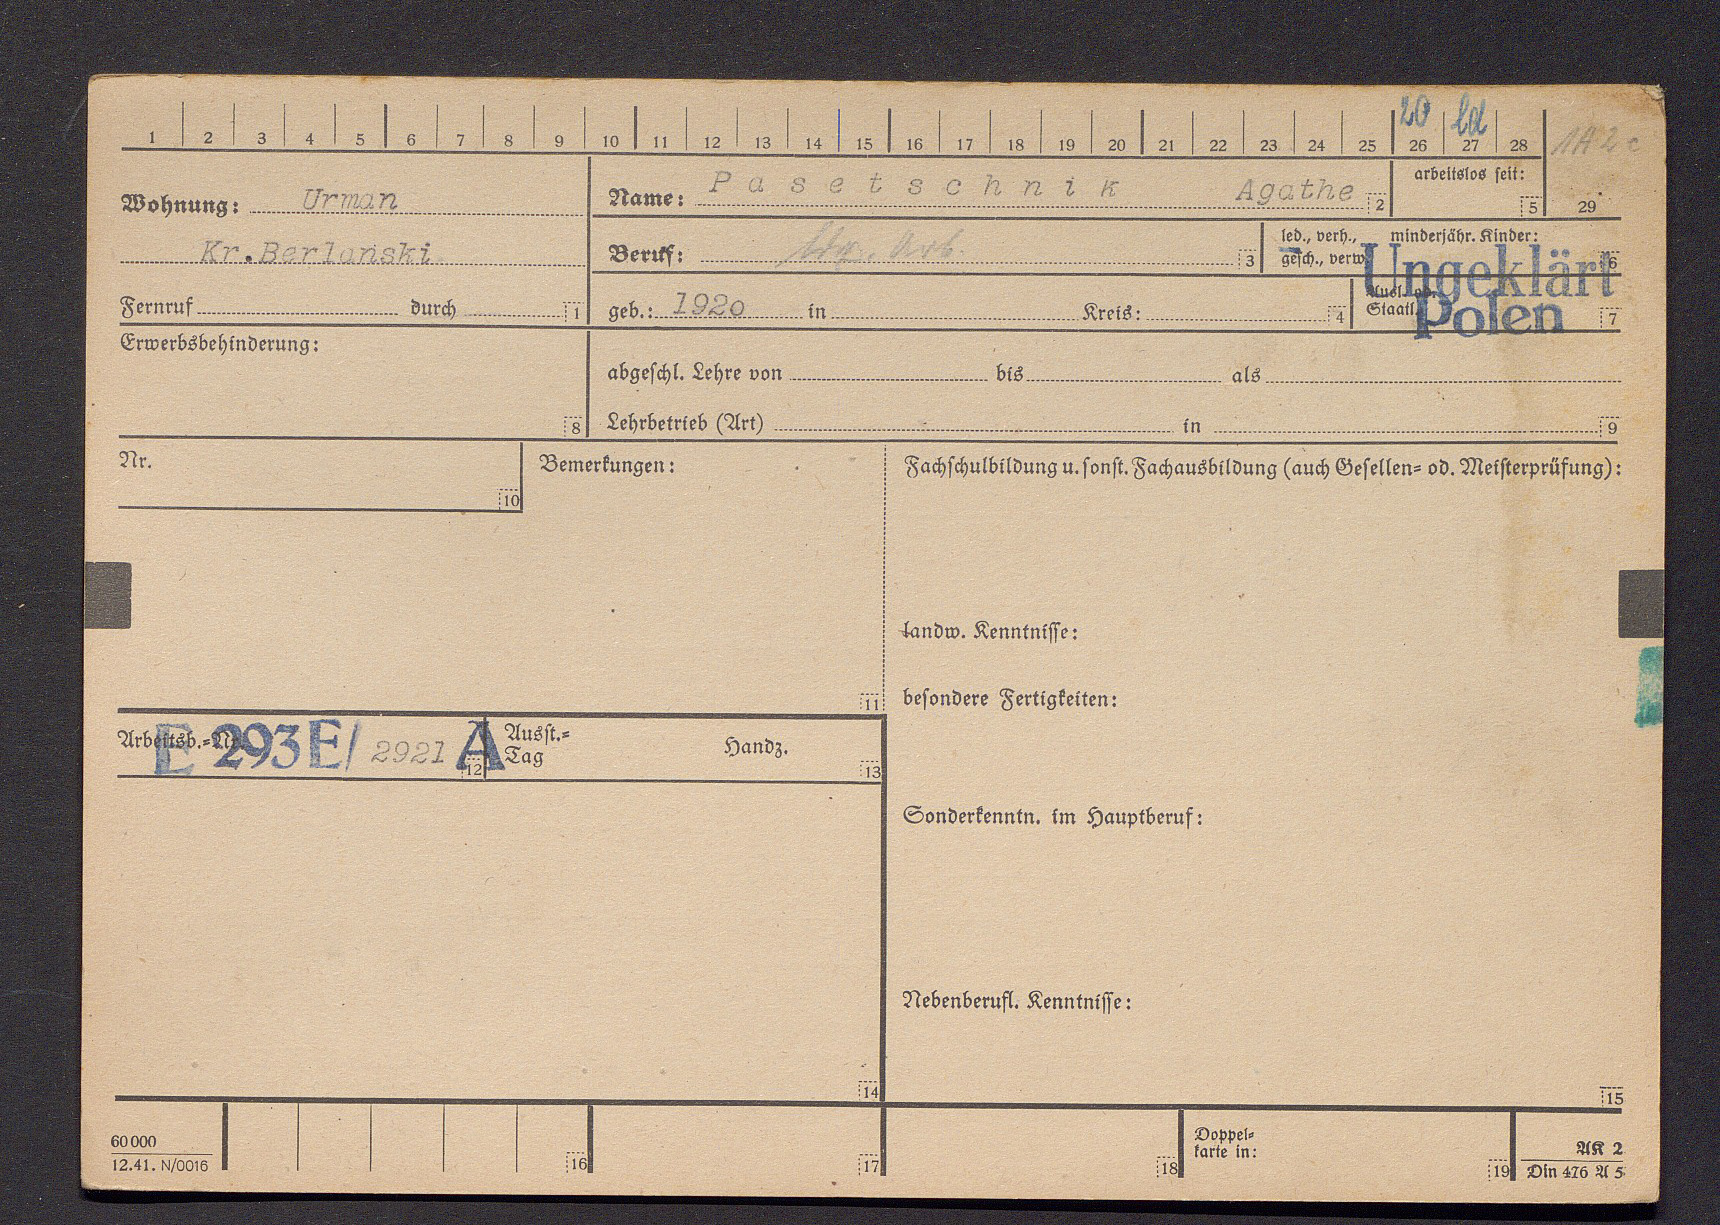 1 2 3 4 5 6 7 8 9 10 11 12 13 14 15 16 17 18 19 20 21 22 23 24 25 26 27 28
20 ld
1A2c
29
arbeitslos seit:
5
Wohnung: Urman
Kr.Berlanski
Fernruf durch 1
Name: Pasetschnik Agathe 2
Beruf: ldw. Arb. 3
led., verh., gesch., verw.
minderjähr. Kinder: 6
geb.: 1920 in Kreis: 4
Ausl. od.
Staatl. 7
Ungeklärt
Polen
Erwerbsbehinderung:
8
abgeschl. Lehre von bis als
Lehrbetrieb (Art) in 9
Nr.
10
Bemerkungen:
11
Fachschulbildung u. sonst. Fachausbildung (auch Gesellen= od. Meisterprüfung):
landw. Kenntnisse:
besondere Fertigkeiten:
Arbeitsb.=Nr. E 293 E/ 2921 A 12
Ausst.=
Tag
Handz.
13
Sonderkenntn. im Hauptberuf:
Nebenberufl. Kenntnisse:
14
15
60 000
12.41. N/0016
16
17
18
Doppel=
karte in:
19
AK 2
Din 476 A 5